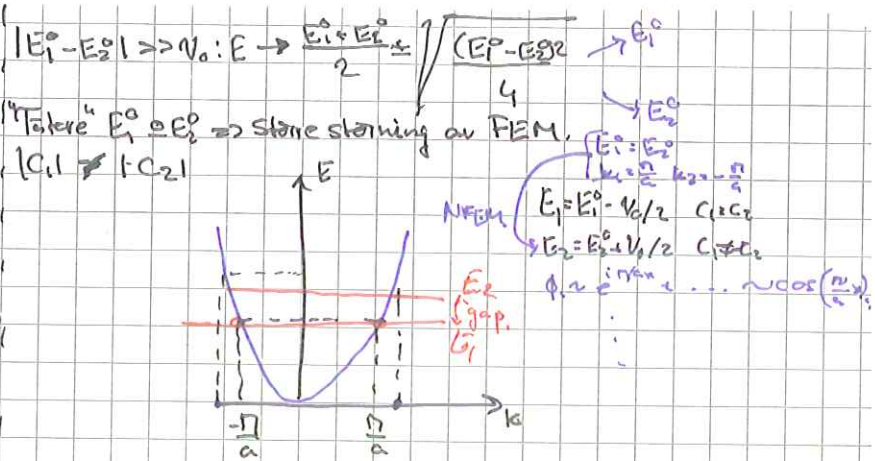 |E₁⁰-E₂⁰| >> V₀ : E → (E₁⁰+E₂⁰)/2 ± √((E₁⁰-E₂⁰)²/4) → E₁⁰
→ E₂⁰
E₁⁰ & E₂⁰ => større størning av FEM.
|C₁| ≠ |-C₂|
E₁⁰ = E₂⁰
k₁ = π/a k₂ = -π/a
NFEM
E₁ = E₁⁰ - V₀/2 C₁ = C₂
E₂ = E₂⁰ + V₀/2 C₁ ≠ C₂
ϕ₁ ~ e^{iπ/a x} + ... ~ cos(π/a x)
E
E₂
gap.
E₁
k
-π/a π/a